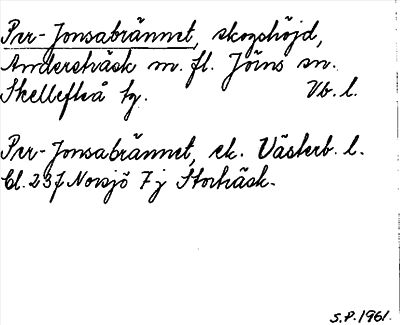 Per-Jonsabrännet, skogshöjd,
Andersträsk m. fl. Jörns sn.
Skellefteå tg. Vb. l.
Per-Jonsabrännet, ek. Västerb. l.
bl. 237 Norsjö 7 j Storträsk.
S.P. 1961.